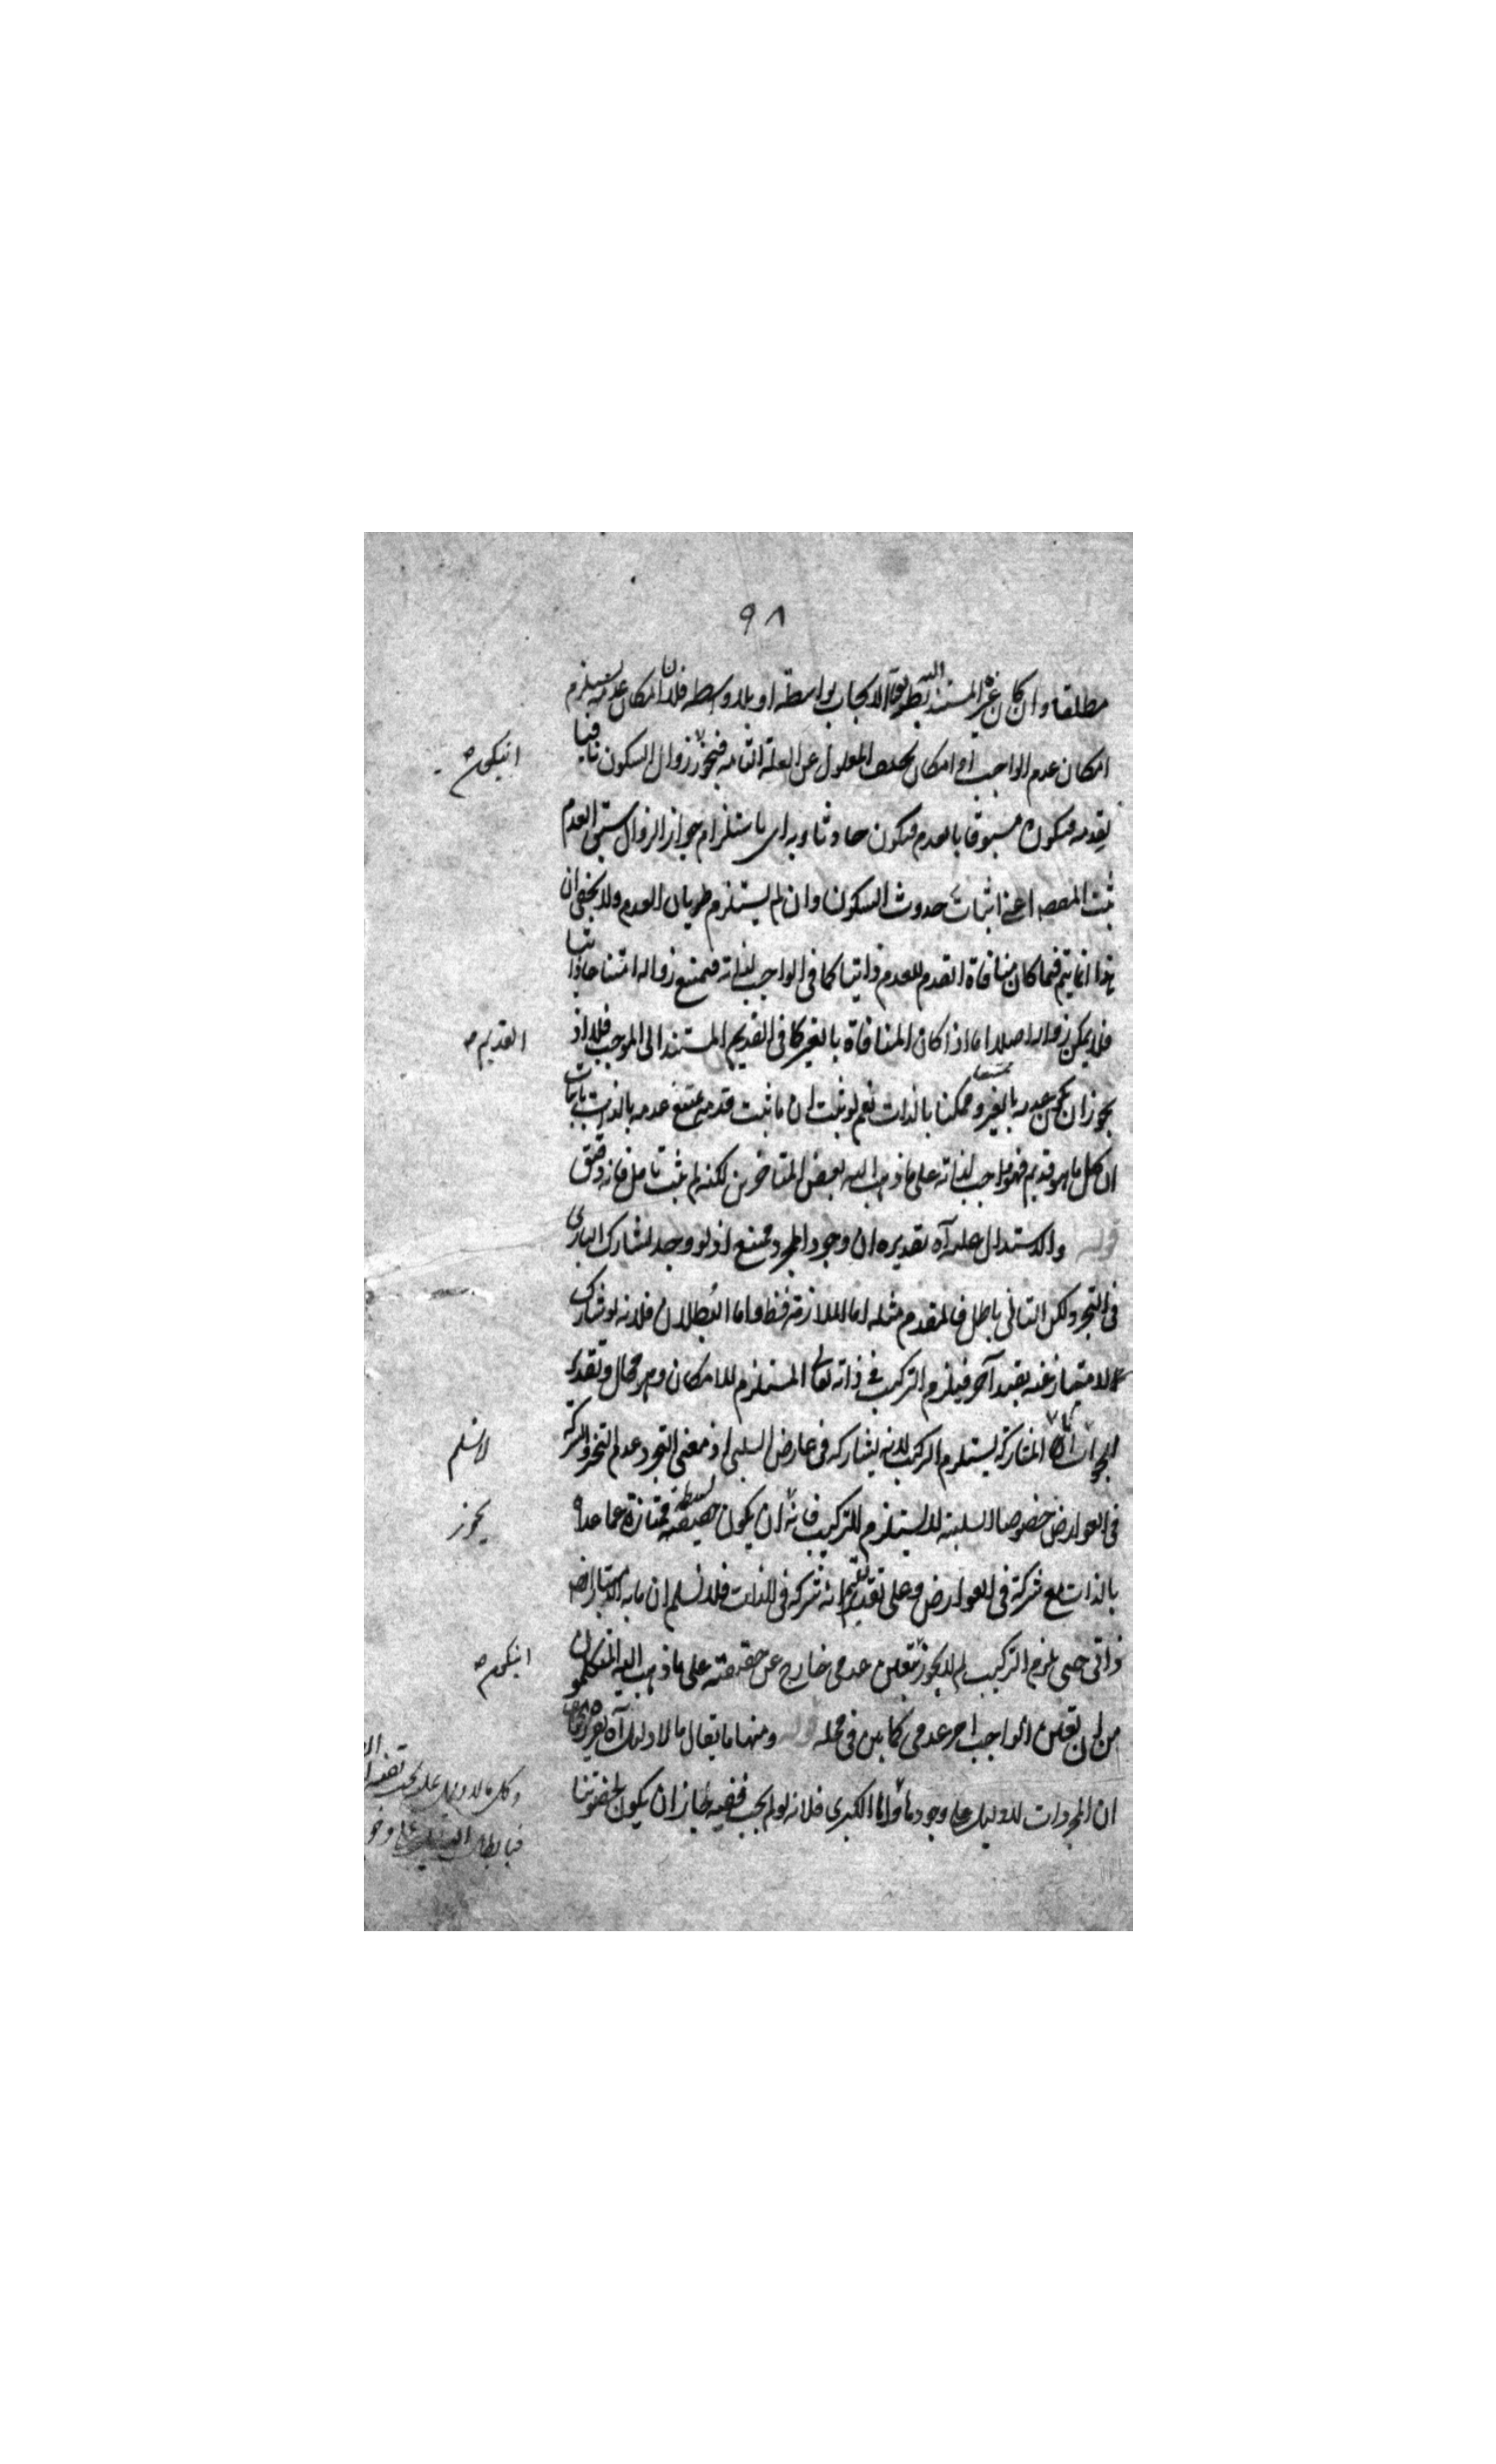 ٩٨
مطلقا وان كان غيره المستند اليه بطريق الايجاب بواسطة او بلا وسطه فلان امكان عدمه يستلزم
امكان عدم الواجب او امكان تخلف المعلول عن العلة التامة فيجوز زوال السكون نافيا
ان يكون
لقدمه فيكون مسبوقا بالعدم فيكون حادثا وبه اى باستلزام جواز الزوال سبق العدم
ثبت المقصد اعنى اثبات حدوث السكون وان لم يستلزم طريان العدم ولا يخفى ان
هذا انما يتم فيما كان منافاة القدم للعدم ذاتيا كما فى الواجب لذاته فيمتنع زواله امتناعا ذاتيا
فلا يمكن زواله اصلا اما اذا كان المنافاة بالغير كما فى القديم المستند الى الموجب فلا اذ
القديم
يجوز ان يكون عدمه بالغير وممكنا بالذات نعم لو ثبت ان ما ثبت قدمه يمتنع عدمه بالذات
ممتنعا
ان كل ما هو قديم فهو واجب لذاته على ما ذهب اليه بعض المتاخرين لكنه لم يثبت تامل فانه دقيق
قوله والاستدلال عليه آه تقديره ان وجود المجرد ممتنع اذ لو وجد لشارك البارى
فى التجرد لكن التالى باطل فالمقدم مثله اما الملازمة فظ واما البطلان فلانه لو شارك
لامتاز عنه بقيد آخر فيلزم التركيب فى ذاته تعالى المستلزم للامكان وهو محال وتقدير
الجواب انا المشاركة يستلزم التركيب لانه يشاركه فى عارض السلبى اذ معنى التجرد عدم التحيز والشركة
لا نسلم
فى العوارض خصوصا السلبية لا يستلزم التركيب فانه ان يكون بسيطة ممتازة عما عداه
يجوز
بالذات مع شركة فى العوارض وعلى تقدير شركة فى الذات فلا نسلم ان ما به الامتياز
ذاتى حتى يلزم التركيب لم لا يجوز بتعين عدمى خارج عن حقيقته على ما ذهب اليه المتكلمون
ان يكون
من ان تعين الواجب امر عدمى كما بين فى محله قوله ومنها ما يقال ما لا دليل آه
ان المجردات لا دليل على وجودها واما الكبرى فلانه لو لم يجب نفيه لجاز ان يكون بحضرتنا
وكل ما لا دليل عليه يجب نفيه